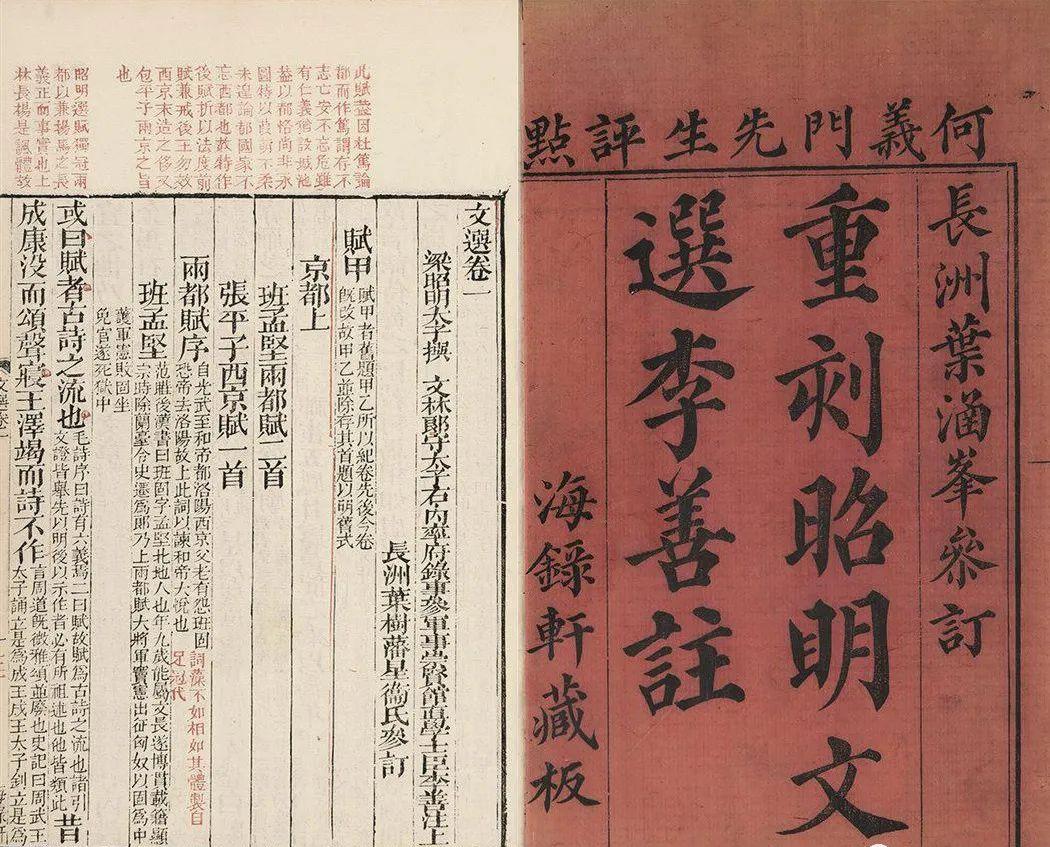 何義門先生評點
長洲葉涵峯參訂
重刻昭明文
選李善註
海錄軒藏板
此賦蓋因杜篤論
都而作篤謂存不
忘亡安不忘危雖
有仁義猶設城池
蓋以都洛尚非永
圖特以葭萌不柔
未遑論都國家不
忘西都也故特作
後賦折以法度前
賦兼戒後王勿效
西京末造之後又
包平子兩京之旨
也
昭明選賦獨冠兩
都以兼揚馬之長
義正而事實也上
林長楊是諷體故
文選卷一
梁昭明太子撰 文林郎守太子右內率府錄事參軍事崇賢館直學士臣李善注上
長洲葉樹藩星衞氏參訂
賦甲 賦甲者舊題甲乙所以紀卷先後今卷
既改故甲乙並除存其首題以明舊式
京都上
班孟堅兩都賦二首
張平子西京賦一首
兩都賦序 自光武至和帝都洛陽西京父老有怨班固
恐帝去洛陽故上此詞以諫和帝大悅也
詞藻不如相如其體製自
足冠代
班孟堅 范曄後漢書曰班固字孟堅北地人也年九歲能屬文長遂博貫載籍顯
宗時除蘭臺令史遷爲郎乃上兩都賦大將軍竇憲出征匈奴以固爲中
護軍憲敗固坐
免官遂死獄中
或曰賦者古詩之流也 毛詩序曰詩有六義焉二曰賦故賦爲古詩之流也諸引
文證皆舉先以明後以示作者必有所祖述也他皆類此
昔
成康没而頌聲寢王澤竭而詩不作 言周道既微雅頌並廢也史記曰周武王
太子誦立是爲成王成王太子釗立是爲